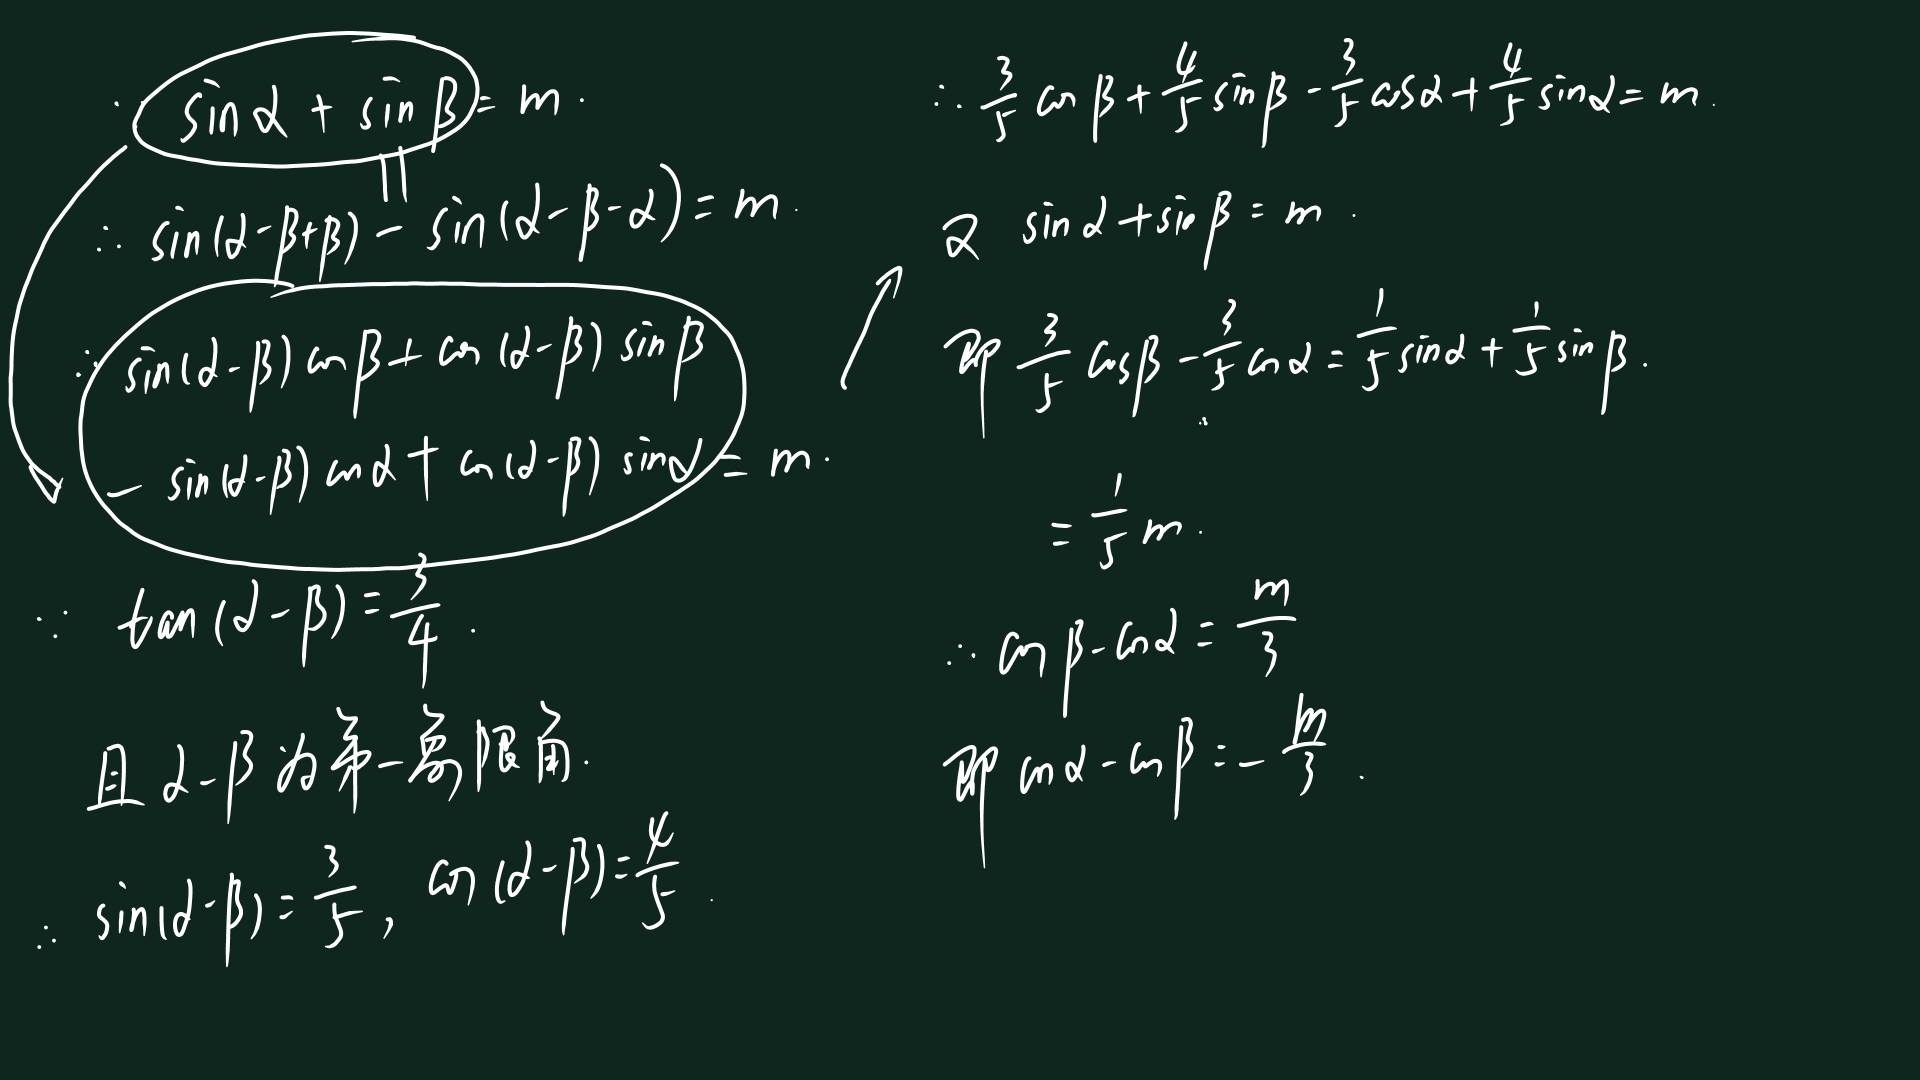 ∵ sinα + sinβ = m.
∴ sin(α-β+β) - sin(α-β-α) = m.
∴ sin(α-β)cosβ + cos(α-β)sinβ
- sin(α-β)cosα + cos(α-β)sinα = m.
∵ tan(α-β) = 3/4.
且 α-β 为第一象限角.
∴ sin(α-β) = 3/5, cos(α-β) = 4/5.
∴ 3/5 cosβ + 4/5 sinβ - 3/5 cosα + 4/5 sinα = m.
又 sinα + sinβ = m.
即 3/5 cosβ - 3/5 cosα = 1/5 sinα + 1/5 sinβ.
= 1/5 m.
∴ cosβ - cosα = m/3
即 cosα - cosβ = - m/3.